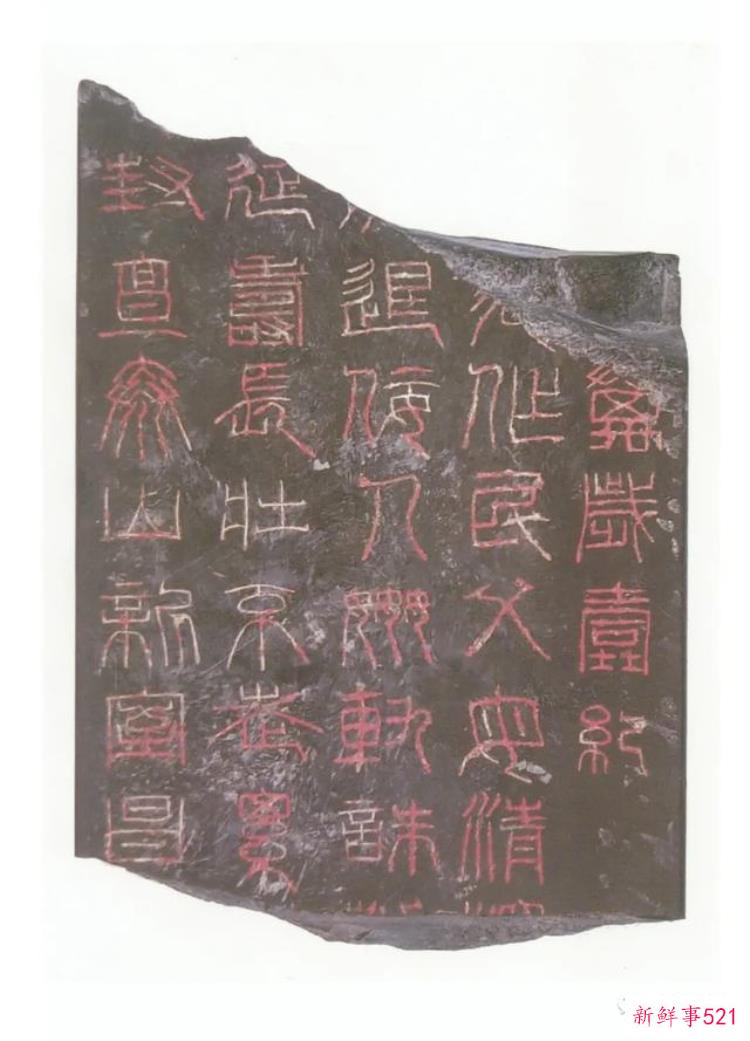 萬歲壹紀
作民父母清
退佞人姦軌誅
延壽長壯不老累
封亶泰山新室昌
新鲜事521